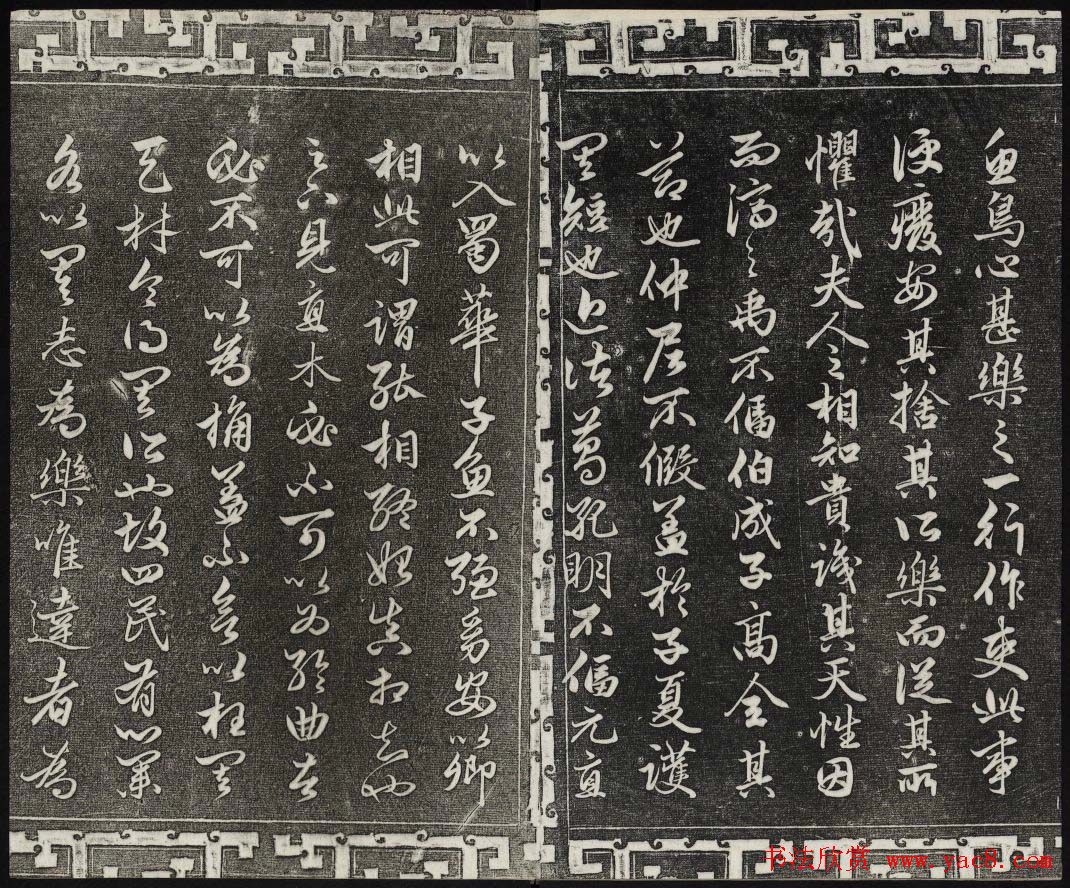 魚鳥心甚樂之一行作吏此事
便廢安其捨其所樂而從其所
懼哉夫人之相知貴識其天性因
而濟之禹不偪伯成子高全其
節也仲尼不假蓋於子夏護
其短也近諸葛孔明不偪元直
以入蜀華子魚不強幼安以卿
相此可謂能相終始真相知也
足下見直木必不可以為輪曲者
必不可以為桷蓋不欲以枉其
天材令得其所也故四民有業
各以其志為樂唯達者為
书法欣赏 www.yac8.com